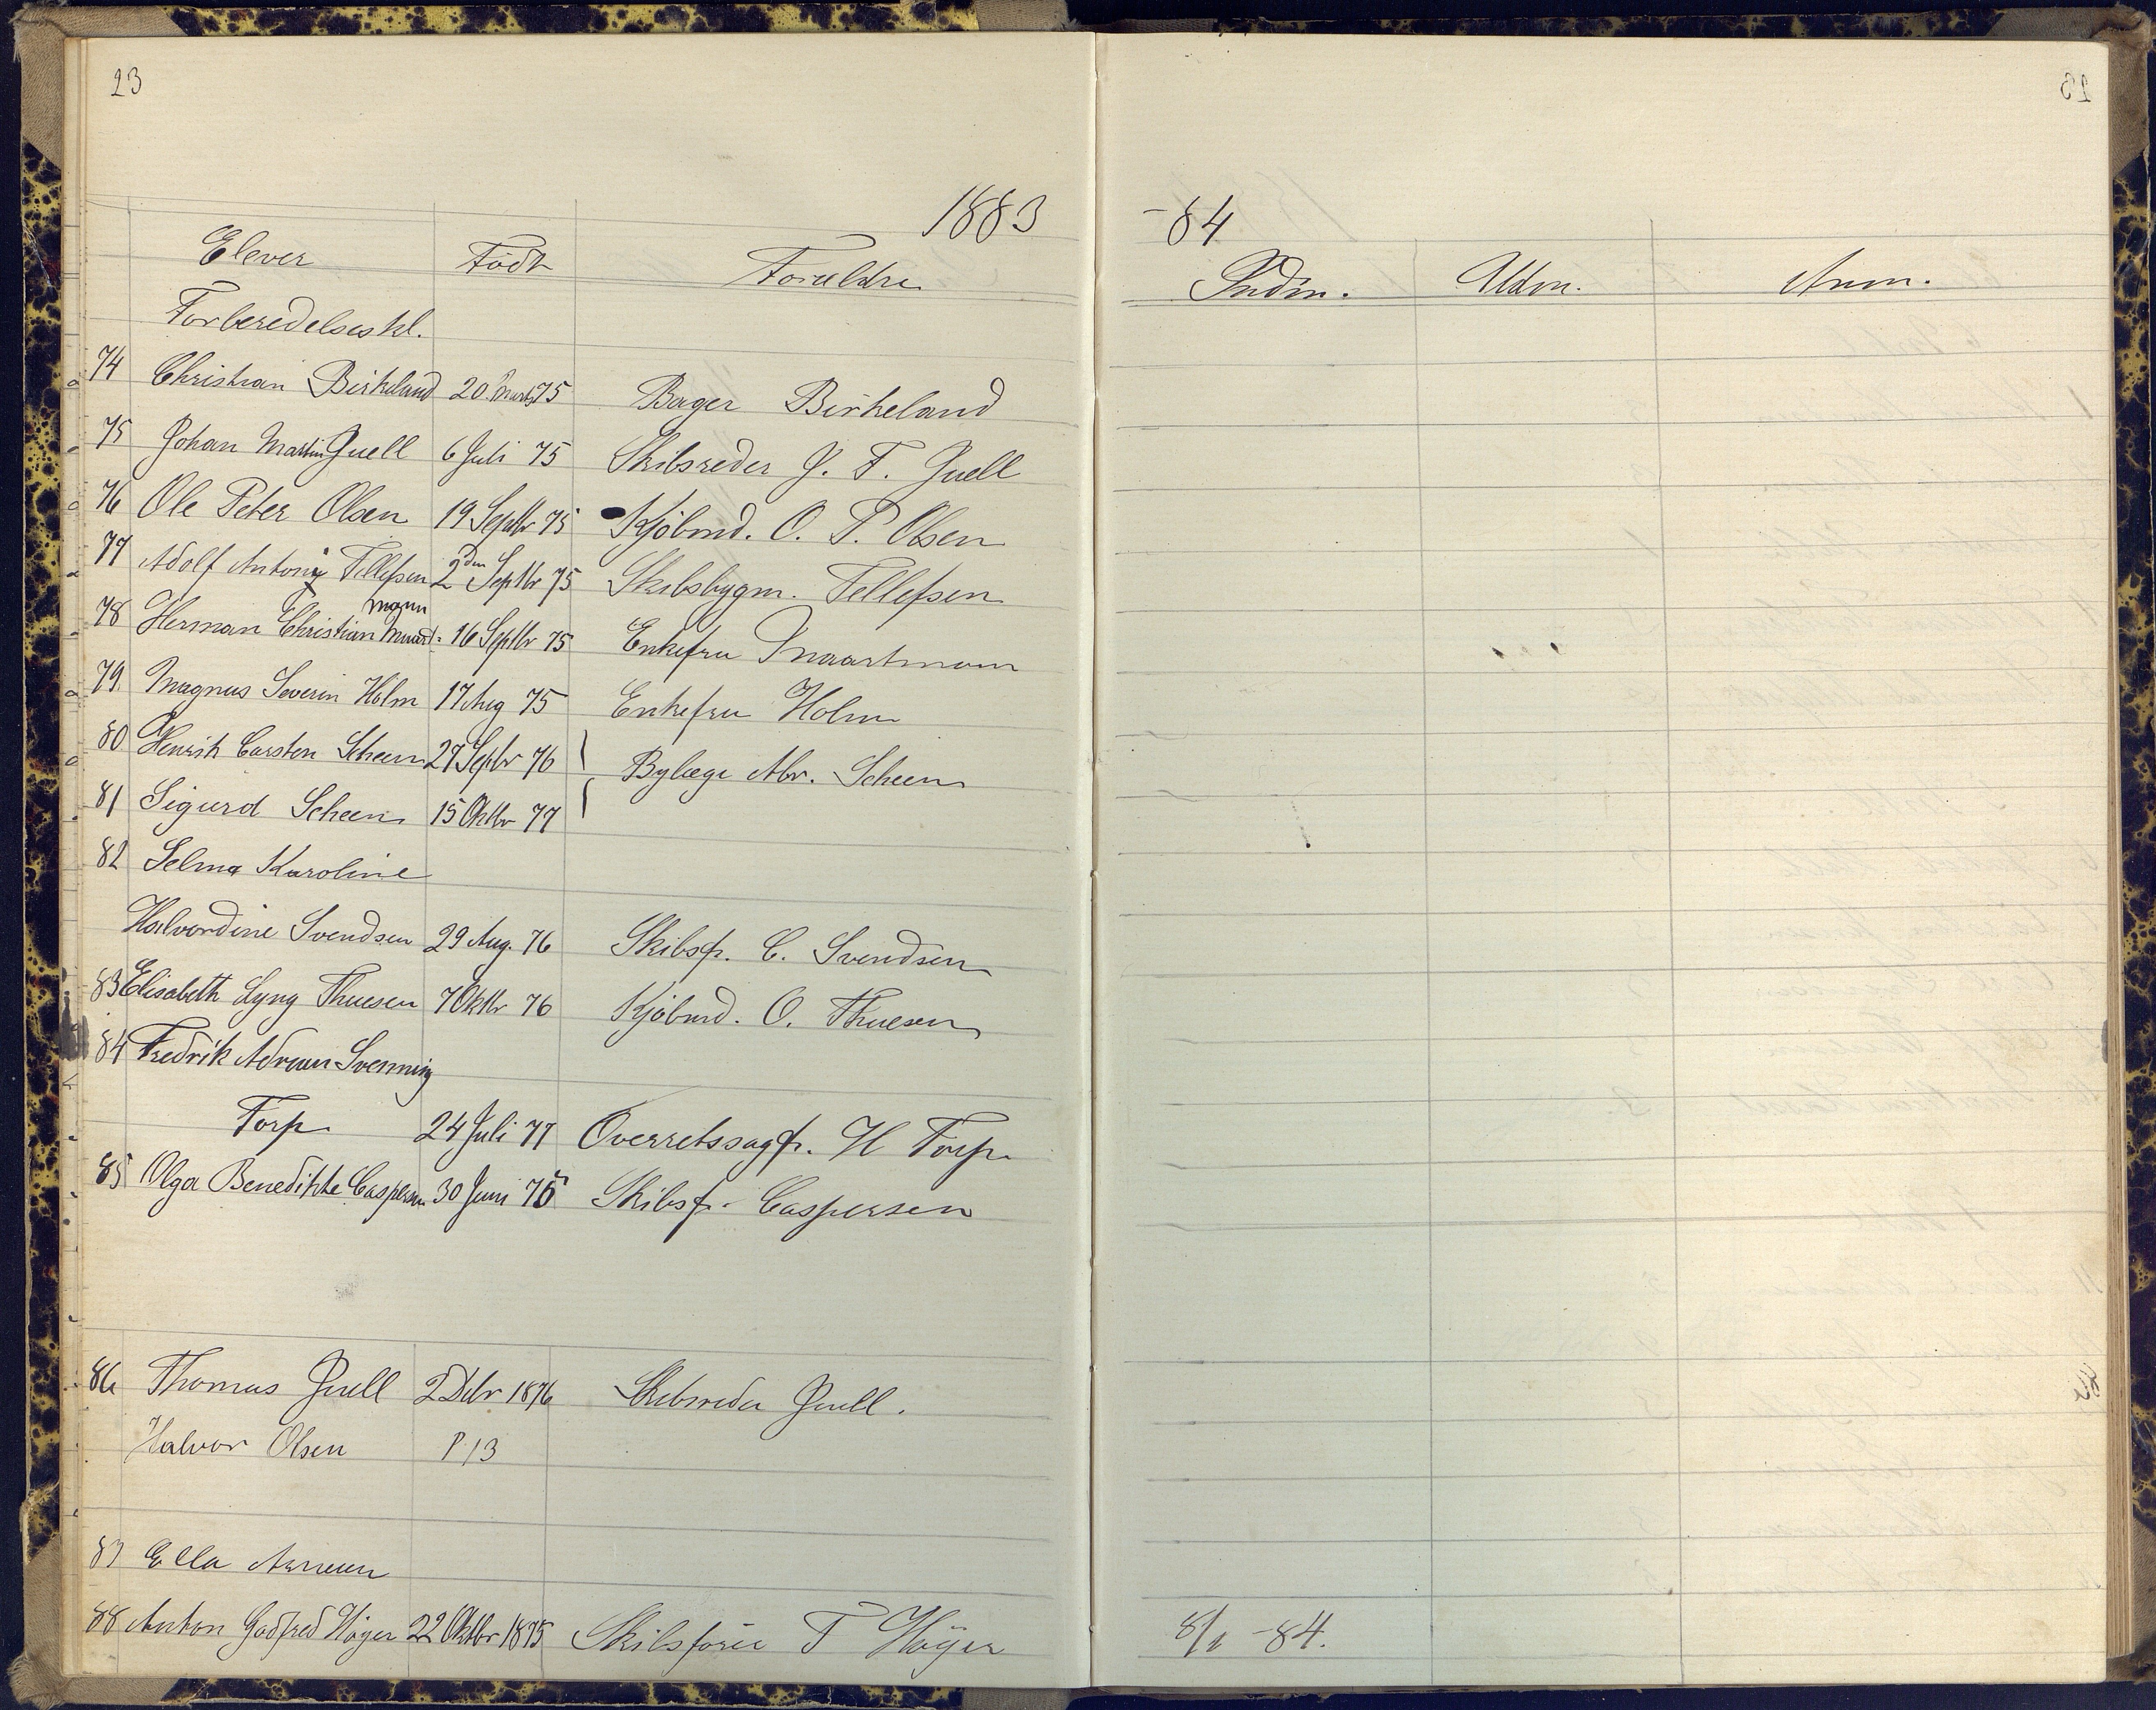 23
1883 -84
Elever Födt Forældre Indm. Udm. Anm.
Forberedelseskl.
74 Christian Birkeland 20. Marts 75 Bager Birkeland
75 Johan Martin Juell 6 Juli 75 Skibsreder J. F. Juell
76 Ole Peter Olsen 19 Septbr 75 Kjöbmd. O. P. Olsen
77 Adolf Antony Tellefsen 2den Septbr 75 Skibsbygm. Tellefsen
mann
78 Herman Christian 16 Septbr 75 Enkefru
79. Magnus Severin Holm 17 Aug 75 Enkefru Holm
80 Henrik Carsten Scheen 27 Septbr 76 Bylæge Abr. Scheen
81 Sigurd Scheen 15 Oktbr 77
82 Selma Karoline
Halvordine Svendsen 29 Aug. 76 Skibsf. C. Svendsen
83 Elisabeth Lyng Thuesen 7 Oktbr 76 Kjöbmd. O. Thuesen
84 Fredrik Adrian Svenning
Torp 24 Juli 77 Overretssagf. H Torp
85 Olga Benedikte Caspersen 30 Juni 75 Skibsf. Caspersen
86 Thomas Juell 2 Dcbr 1876 Skibsreder Juell.
Halvor Olsen P. 13
87 Ella
88 Anton Godfred Höyer 22 Oktbr 1875 Skibsförer T Höyer 8/1 -84.